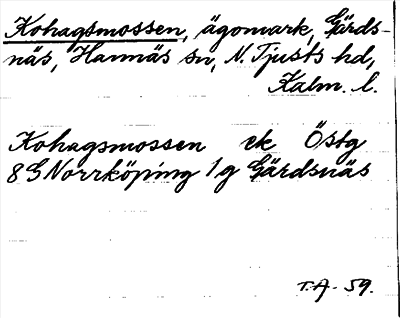 Kohagsmossen, ägomark, Gärds-
näs, Hannäs sn, N. Tjusts hd,
Kalm. l.
Kohagsmossen ek Östg
8 G Norrköping 1 g Gärdsnäs
T.A. 59.